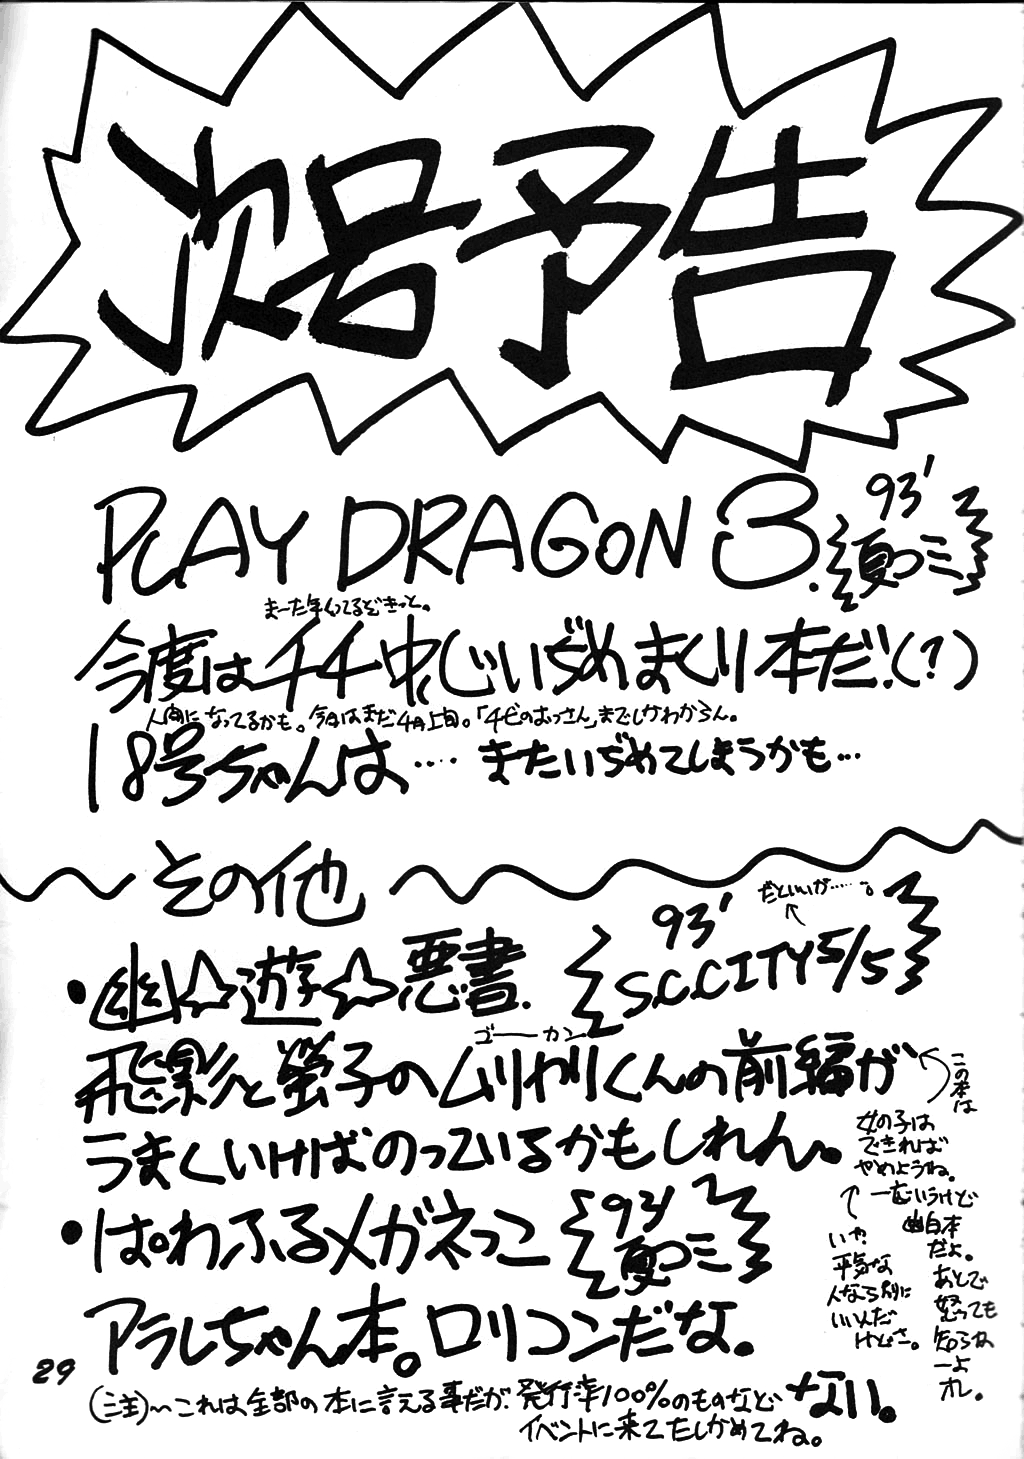 次号予告
PLAY DRAGON 3.
93'
夏コミ
まーた年くってるぞきっと。
今度はチチ中心いぢめまくり本だ!(?)
人間になってるかも。今日はまだ4月上旬。「チビのおっさん」までしかわからん。
18号ちゃんは‥‥またいぢめてしまうかも…
その他
・幽☆遊☆悪書.
93'
S.C.CITY5/5
だといいが……。
ゴーカン
飛影と螢子のムリヤリくんの前編が
うまくいけばのっているかもしれん。
この本は
女の子は
できれば
やめようね。
一応いうけど
幽白本
だよ。
あとで
怒っても
知らね
ーよ
オレ。
いや
平気な
人なら別に
いいんだ
けどさ。
・ぱわふるメガネっこ
93'
夏コミ
アラレちゃん本。ロリコンだな。
29
(注)~これは全部の本に言える事だが、発行率100%のものなどない。
イベントに来てたしかめてね。